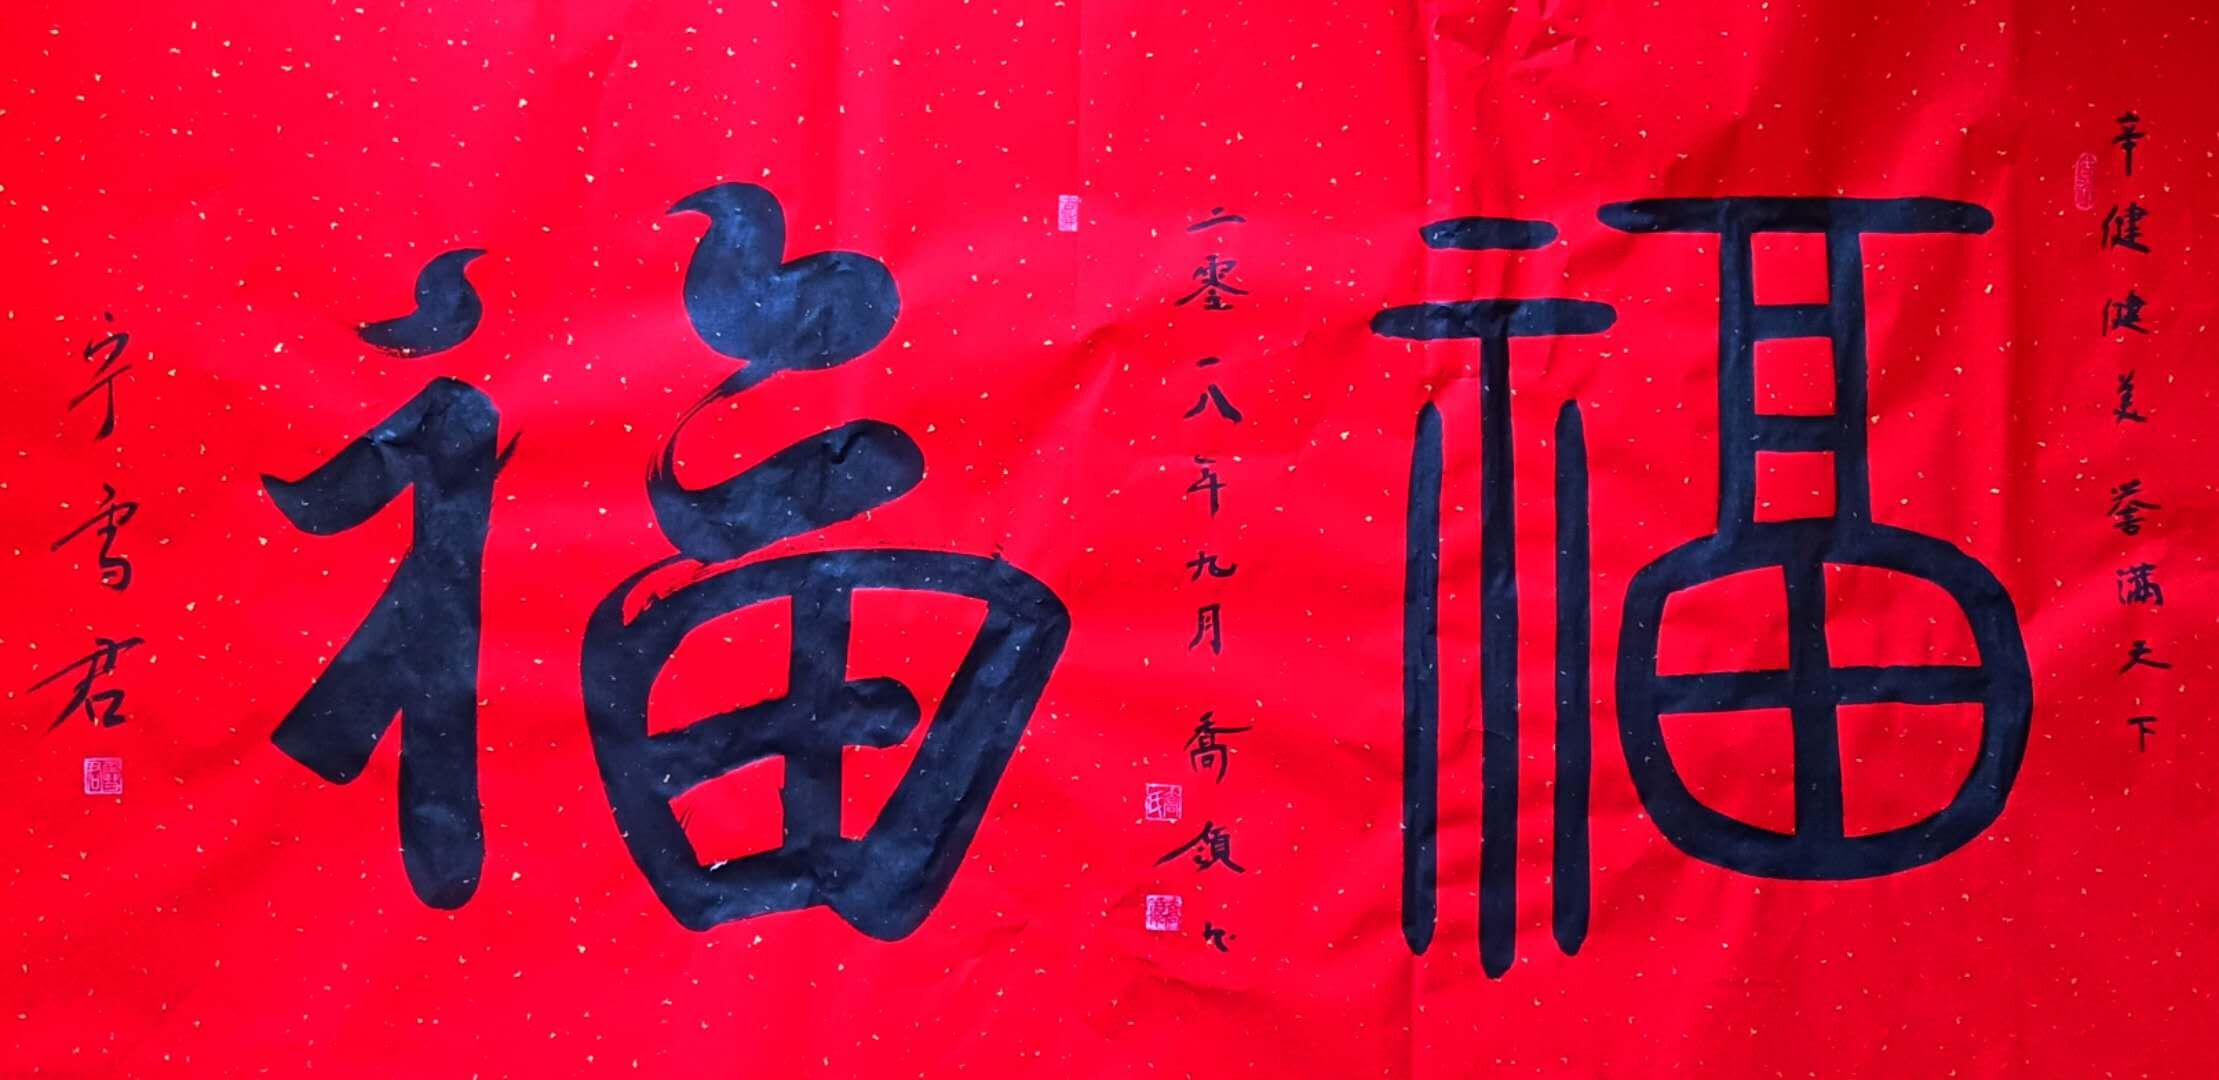 辛健健美誉满天下
福
二零一八年九月喬領书
福
宁雪君